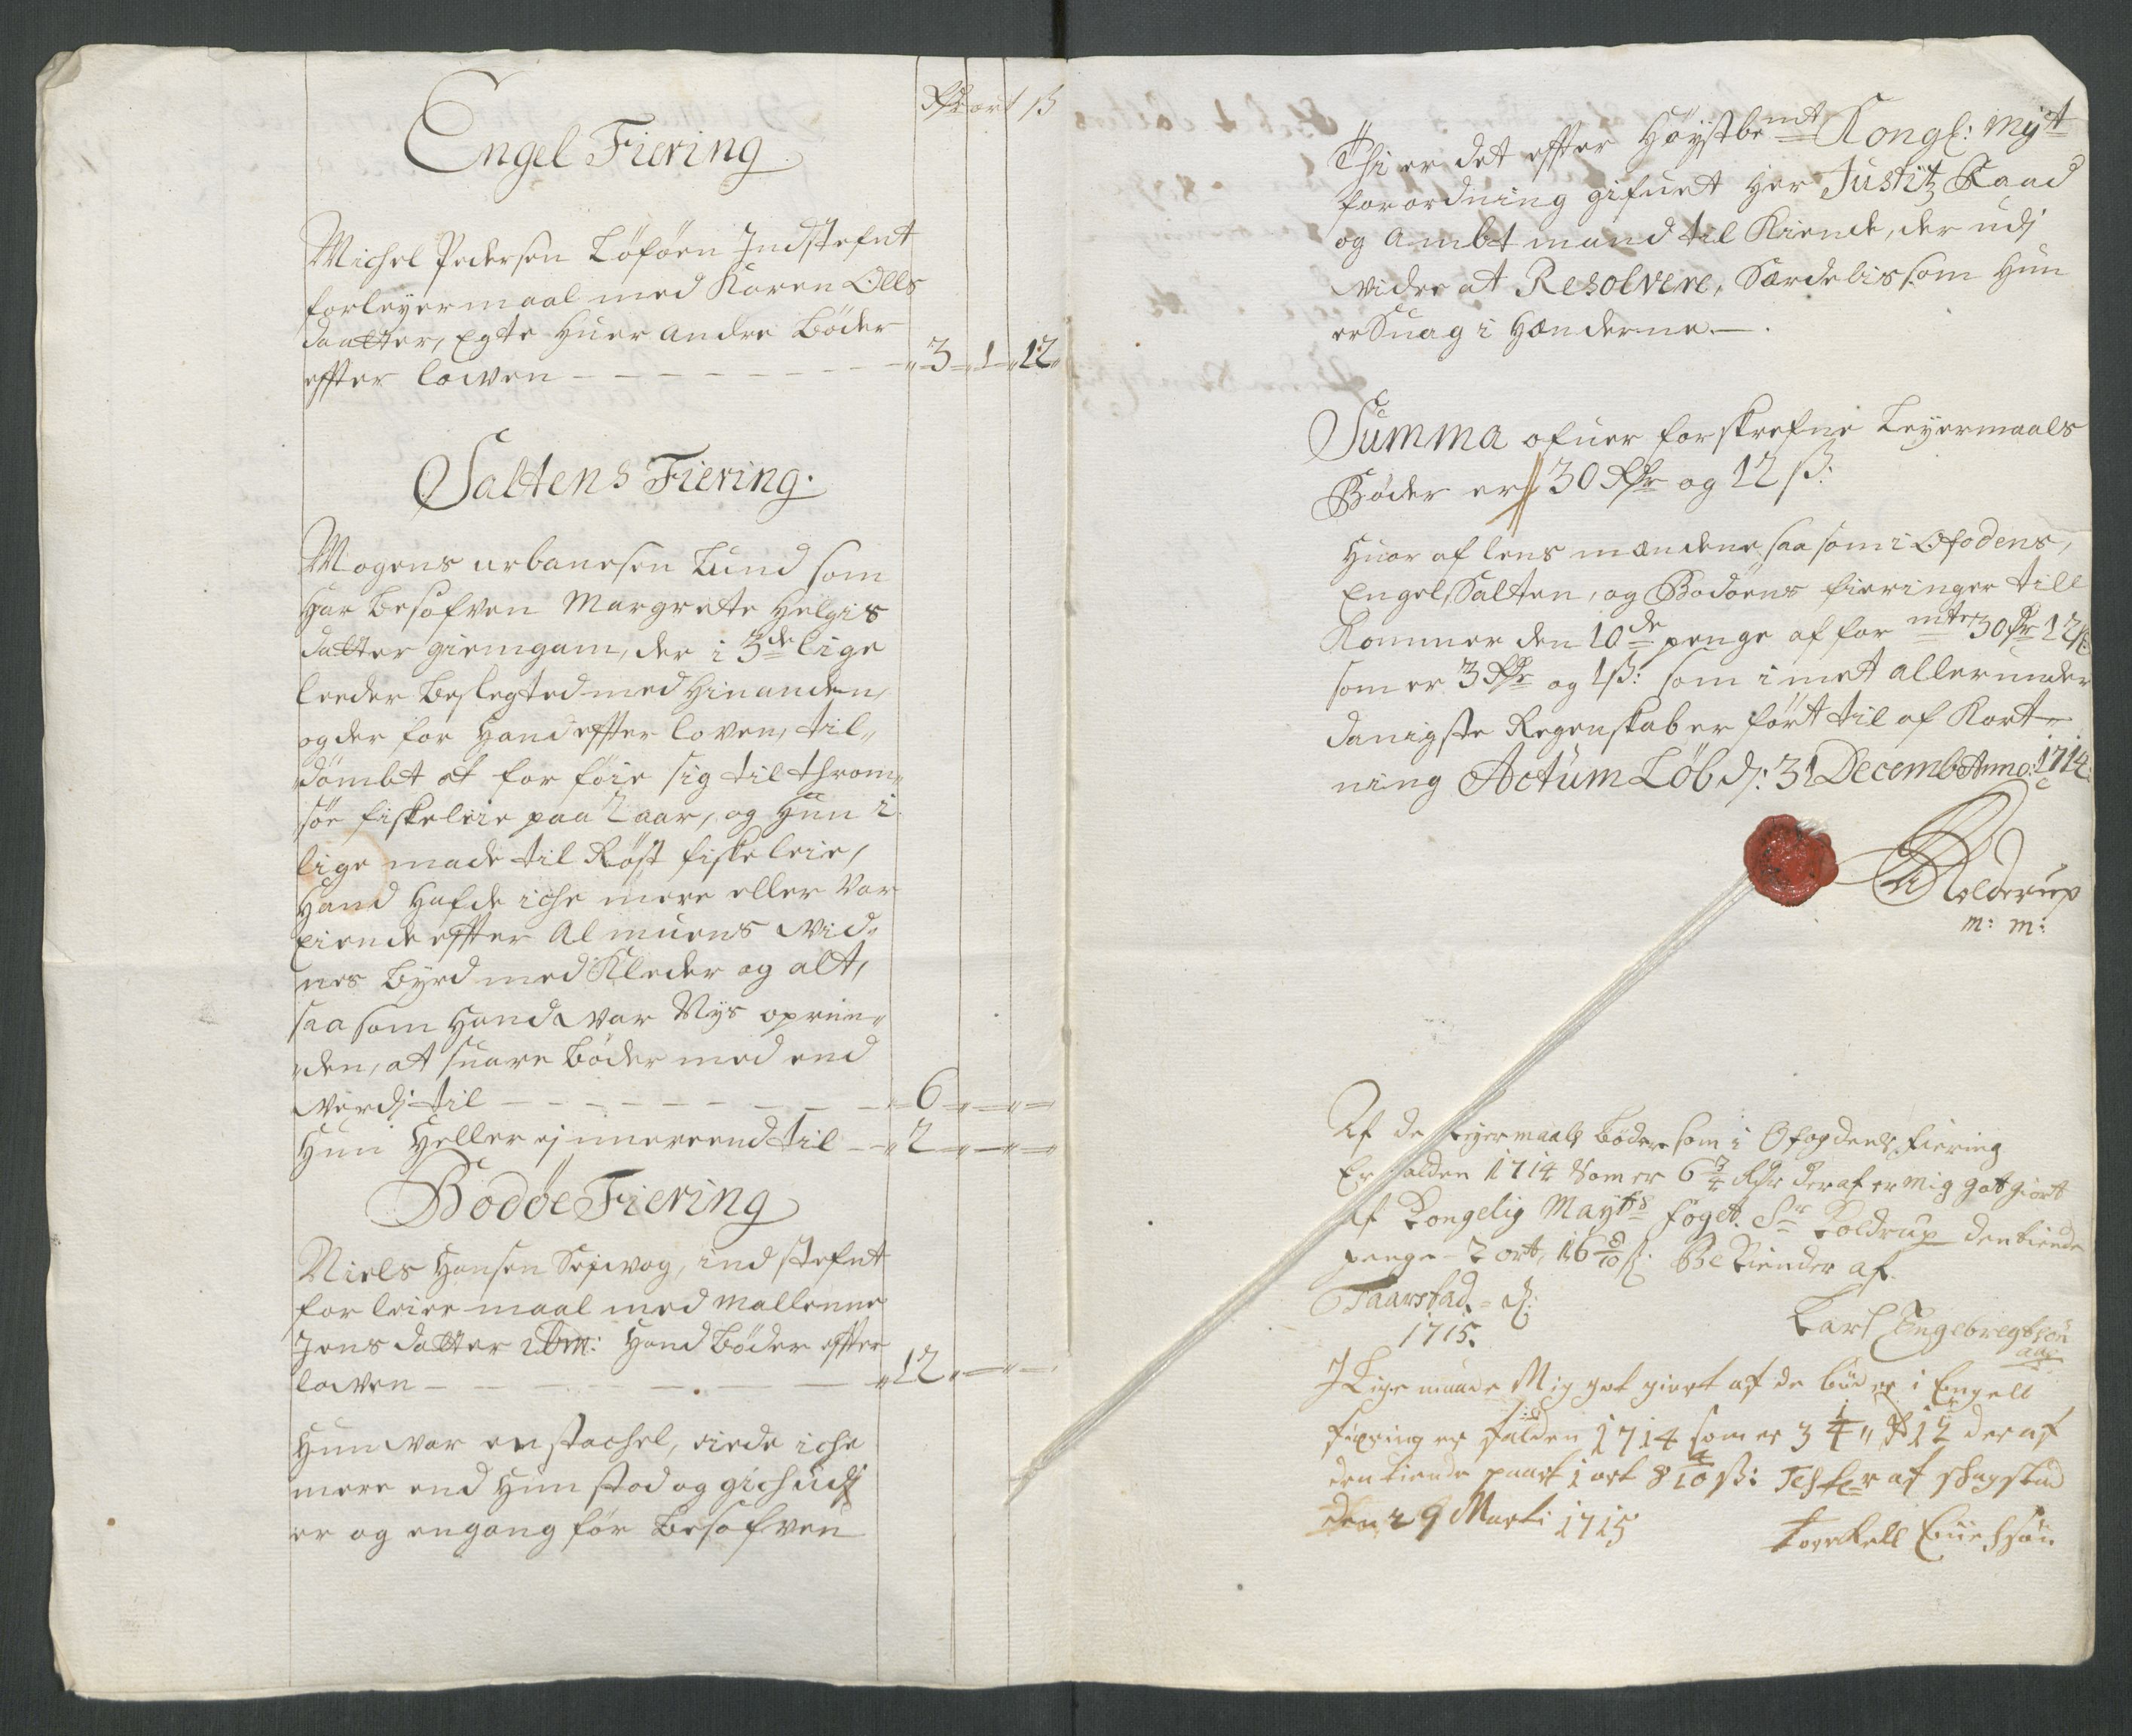 Rdr ort ß
Engel Fiering
Michel Pedersen Löföen Indstefnt
forleyermaal med Karen Olls
daatter, Egte huer andre böder
effter lowen - - - 3 - 1 - 12
Saltens Fiering.
Mogens urbanesen Lund som
har besofven Margrette Helgis
datter giemgam, der i 3de lige
leeder beslegted med hinanden,
og der for hand effter loven, til„
dömbt at for föie sig til throm„
söe fiskeleie paa 2 aar, og hun i
lige made til Röst fiskeleie,
Hand hafde iche mere eller var
eiende effter Almuens vid„
nes byrd med Kleder og alt,
saa som hand var Nys oprun„
den, at suare böder med end
verdj til - - - 6
hun heller ej mere end til - 2
Bodöe Fiering
Niels Hansen Sejwog, indstefnt
for leiermaal med Mallenne
Jens datter ibm: hand böder effter
lowen - - - 12
Hun war en stachel, eiede iche
mere end hun stod og gich udj
er og engang för besofven
Thi er det effter Höystbemdt Kongl: Myt
forordning gifuet Her Justitz Raad
og Ambtmand til Kiende, der udj
vider at Resolvere, Særdelis som hun
er Suag i Hænderne.
Summa ofuer forskrefne Leyermaals
Böder er 30 Rdr og 12 ß:
Huor af lensmændene saa som i Ofodens,
Engel, Salten, og Bodöens fieringer till
Kommer den 10de penge af for mte 30 Rdr 12 ß:
som er 3 Rdr og 1 ß: som i met allerunder
danigste Regenskab er fört til af Kort-
ning Actum Löb dj: 31 Decemb Anno: 1714:
Kolderup
m: m:
Af de Leyermaals böder som i Ofogdens fiering
Er falden 1714 Som er 6 3/4 Rdr deraf er mig got giort
af Kongelig Mayts foget Sr Koldrup den tiende
penge - 2 ort, 16 8/10 ß. Bekiender af.
Taarstad = d:
1715.
Karl Engebregtsön
I Lige maade Mig got giort af de böder i Engell
fiering er falden 1714 som er 3 1/4 „ ß 12 der af
den tiende paart 1 ort 8 4/10 ß: Tester af
den 29 Marti 1715
Torkell